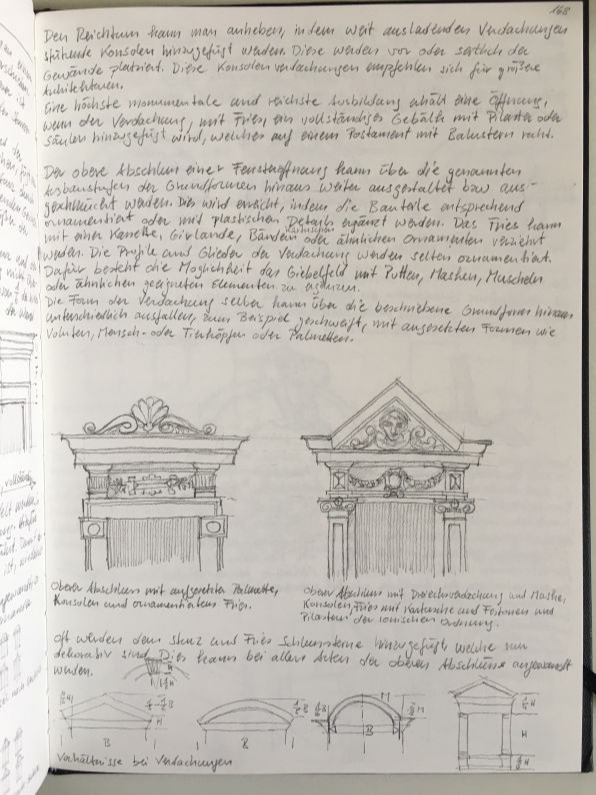 168
Den Reichtum kann man anheben, indem weit ausladenden Verdachungen
stützende Konsolen hinzugefügt werden. Diese werden vor oder seitlich der
Gewände platziert. Diese Konsolenverdachungen empfehlen sich für größere
Architekturen.
Eine höchste monumentale und reichste Ausbildung erhält eine Öffnung,
wenn der Verdachung, mit Fries, ein vollständiges Gebälk mit Pilaster oder
Säulen hinzugefügt wird, welches auf einem Postament mit Balustern ruht.
Der obere Abschluss einer Fensteröffnung kann über die genannten
Ausbaustufen der Grundformen hinaus weiter ausgestaltet bzw aus-
geschmückt werden. Dies wird erreicht, indem die Bauteile entsprechend
ornamentiert oder mit plastischen Details ergänzt werden. Das Fries kann
mit einer Girlande, Bändern Kartuschen oder ähnlichen Ornamenten verziert
werden. Die Profile und Glieder der Verdachung werden selten ornamentiert.
Dafür besteht die Möglichkeit das Giebelfeld mit Putten, Masken, Muscheln
oder ähnlichen geeigneten Elementen zu ergänzen.
Die Form der Verdachung selber kann über die beschriebene Grundformen hinaus
unterschiedlich ausfallen, zum Beispiel geschweift, mit angesetzten Formen wie
Voluten, Mensch- oder Tierköpfen oder Palmetten.
Oberer Abschluss mit aufgesetzter Palmette,
Konsolen und ornamentiertem Fries.
Oberer Abschluss mit Dreiecksverdachung und Maske,
Konsolen, Fries mit Kartusche und Festonen und
Pilaster der ionischen Ordnung.
Oft werden dem Sturz und Fries Schlusssteine hinzugefügt welche nun
dekorativ sind. Dies kann bei allen Arten der oberen Abschlüsse angewandt
werden.
H
B
B
M
B
H
Verhältnisse bei Verdachungen